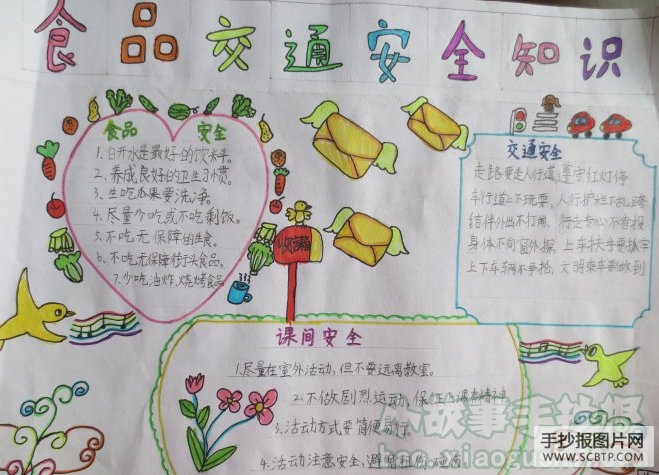 食品交通安全知识
食品 安全
1、白开水是最好的饮料。
2、养成良好的卫生习惯。
3、生吃瓜果要洗净。
4、尽量少吃或不吃剩饭。
5、不吃无保障的生食。
6、不吃无保障街头食品。
7、少吃油炸、烧烤食品
交通安全
走路要走人行道,遵守红灯停
车行道上不玩耍,人行护栏不乱跨
结伴外出不打闹,行走专心不看报
身体不向窗外探,上车扶手要抓牢
上下车辆不争抢,文明乘车要做到
课间安全
1、尽量在室外活动,但不要远离教室。
2、不做剧烈运动,保证上课有精神
3、活动方式要简便易行。
4、活动注意安全,避免扭伤、碰伤
手抄报图片网
WWW.SCBTP.COM